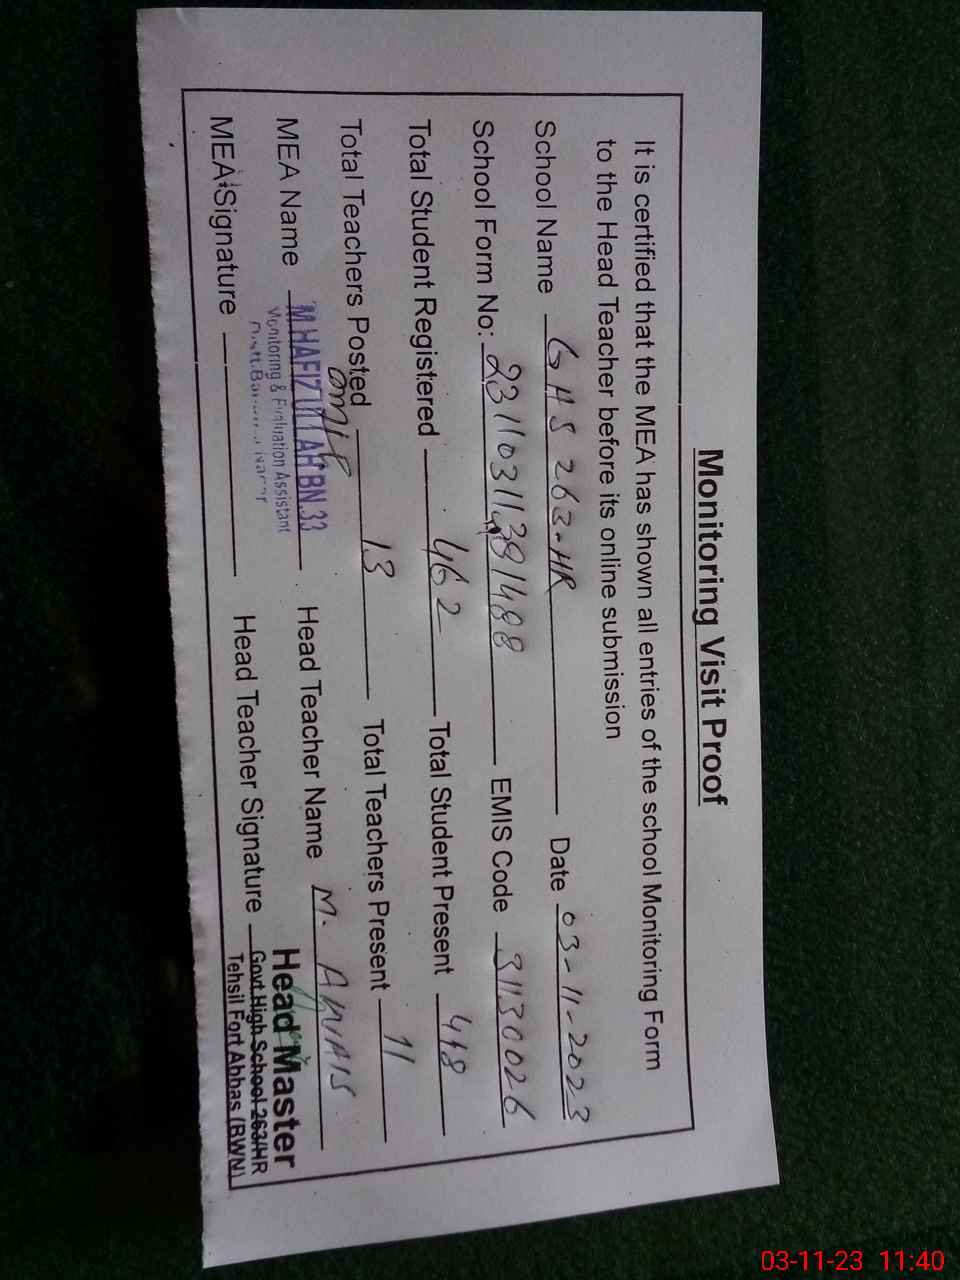 Monitoring Visit Proof
It is certified that the MEA has shown all entries of the school Monitoring Form
to the Head Teacher before its online submission
School Name GHS 263-HR Date 03-11-2023
School Form No: EMIS Code 31130026
Total Student Registered 462 Total Student Present 448
Total Teachers Posted 13 Total Teachers Present 11
MEA Name M.HAFIZ ULLAH BN.33 Head Teacher Name M. AWAIS
Monitoring & Evaluation Assistant
Distt.
MEA Signature Head Teacher Signature
Head Master
Govt.High School 263/HR
Tehsil Fort Abbas (BWN)
03-11-23 11:40